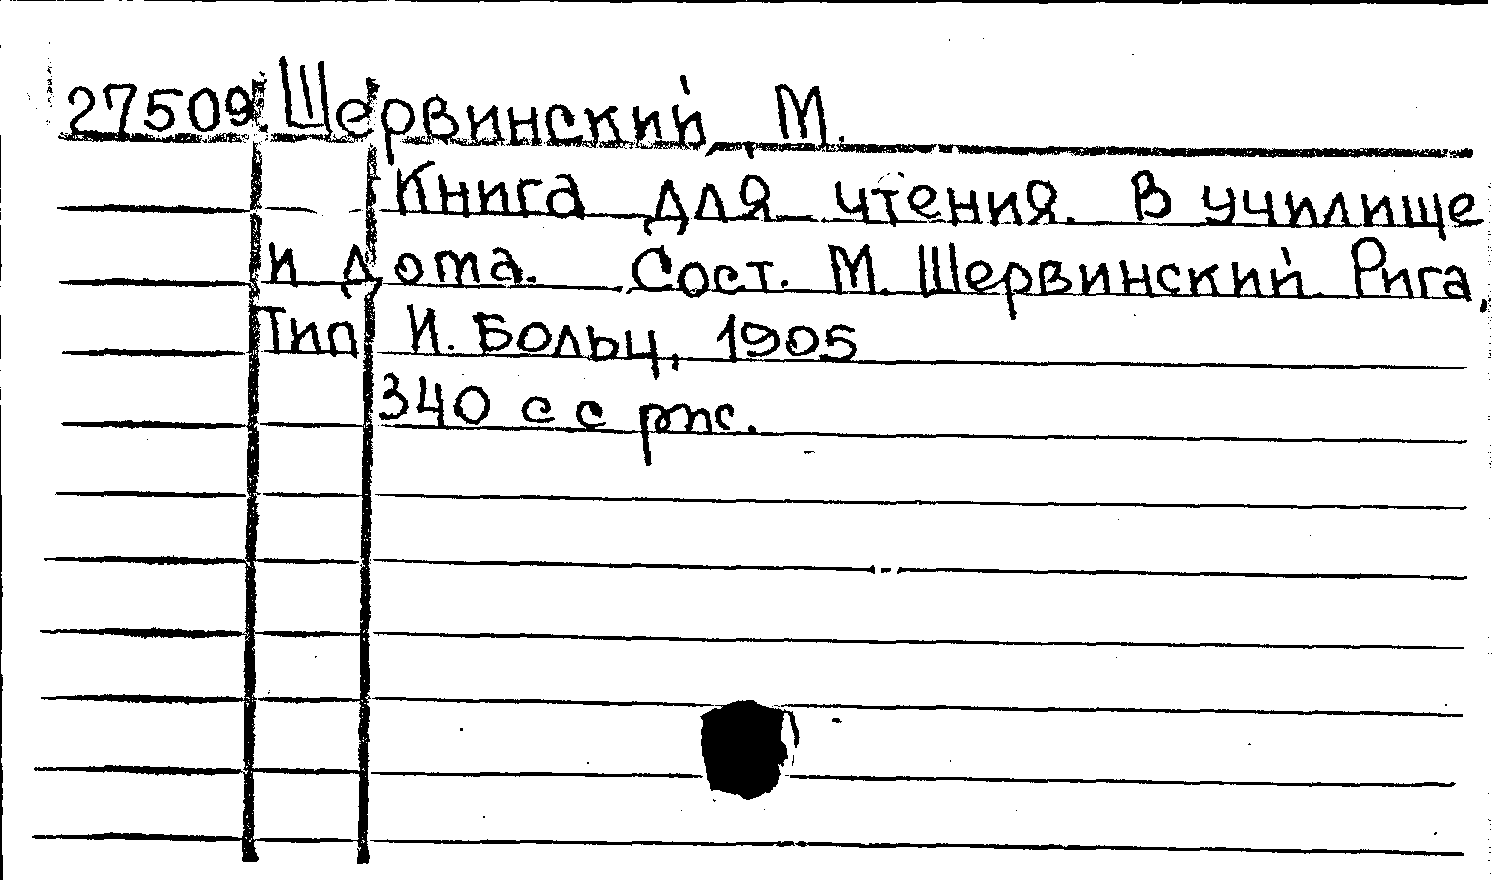 27509 Шервинский М.
Книга для чтения. В училище
и дома. Сост. М. Шервинский Рига,
Тип И. Больц, 1905
340 с с рис.